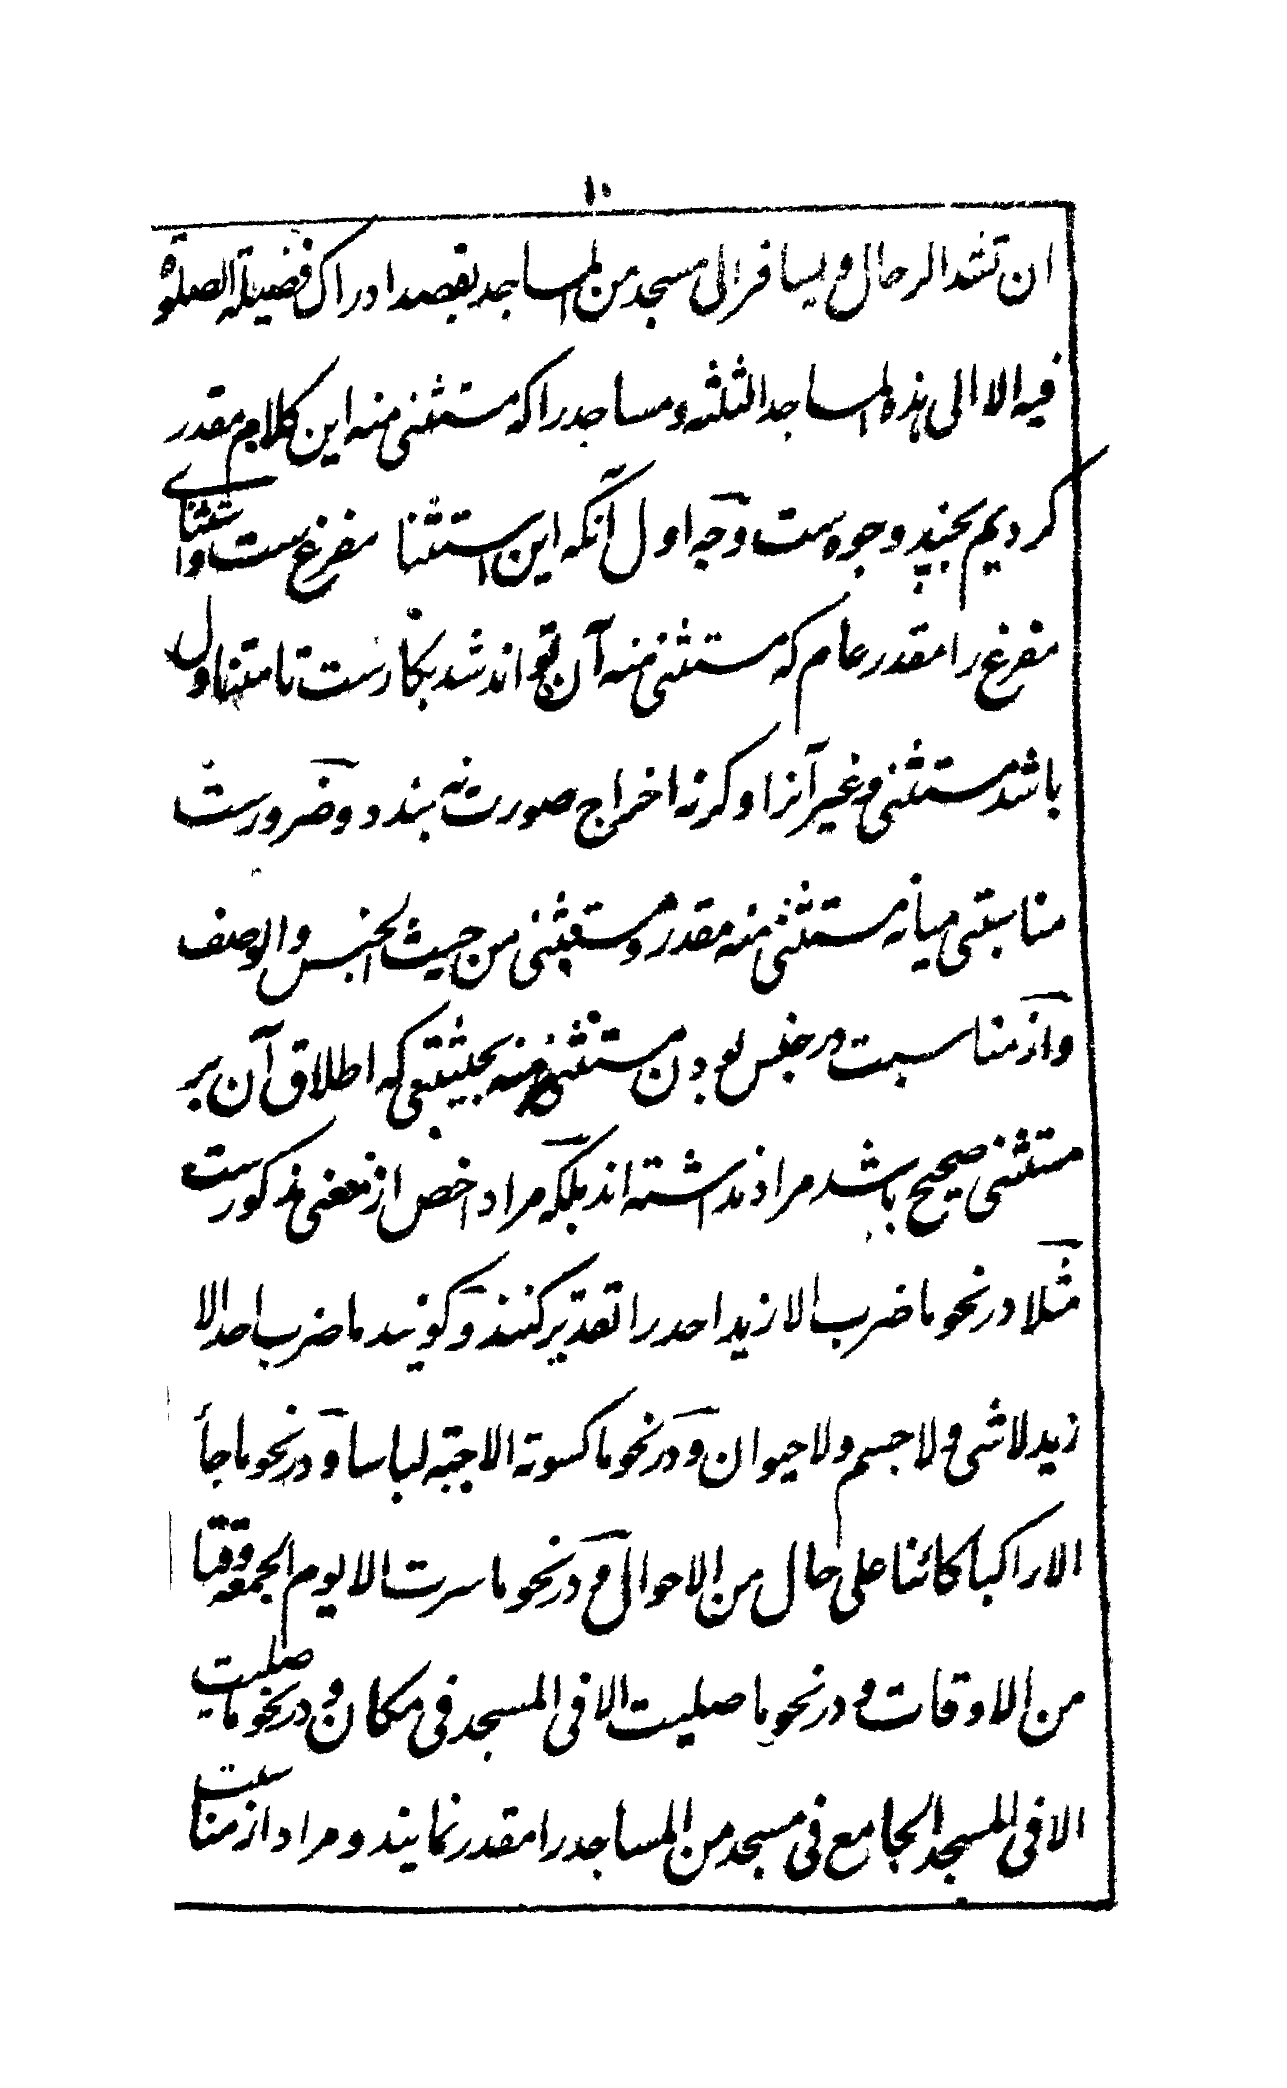 ۱۰
ان تشد الرحال و یسافر الی مسجد من المساجد بقصد ادراک فضیلة الصلوة
فیه الا الی هذه المساجد الثلثه و مساجد را که مستثنی منه این کلام مقدر
کردیم بچند وجوه ست وجه اول آنکه این استثنا مفرغ ست و استثنای
مفرغ را مقدر عام که مستثنی منه آن تواند شد بکارست تا متناول
باشد مستثنی و غیر آنرا و گرنه اخراج صورت نه بندد و ضرورست
مناسبتی میانه مستثنی منه مقدر و مستثنی من حیث الجنس و الوصف
و از مناسبت در جنس بودن مستثنی منه بحیثیتی که اطلاق آن بر
مستثنی صحیح باشد مراد نداشته اند بلکه مراد اخص از معنی مذکورست
مثلا در نحو ما ضرب الا زید احد را تقدیر کنند و گویند ما ضرب احد الا
زید لا شی و لا جسم و لا حیوان و در نحو ما کسوته الا جبته لباسا و در نحو ما جأ
الا راکبا کائنا علی حال من الاحوال و در نحو ما سرت الا یوم الجمعه وقتا
من الاوقات و در نحو ما صلیت الا فی المسجد فی مکان و در نحو ما صلیت
الا فی المسجد الجامع فی مسجد من المساجد را مقدر نمایند و مراد از مناسبت